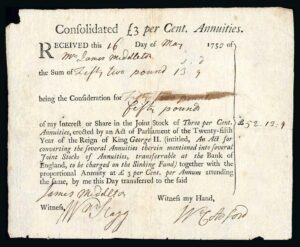 Consolidated £3 per Cent. Annuities.
RECEIVED this 16 Day of May 1750 of
Mr James Middleton
the Sum of Fifty two pound 13 9
being the Consideration for
Fifty pound
of my Interest or Share in the Joint Stock of Three per Cent.
Annuities, erected by an Act of Parliament of the Twenty-fifth
Year of the Reign of King GEORGE II. (intitled, An Act for
converting the several Annuities therein mentioned into several
Joint Stocks of Annuities, transferrable at the Bank of
England, to be charged on the Sinking Fund) together with the
proportional Annuity at £3 per Cent. per Annum attending
the same, by me this Day transferred to the said
£ 52 . 13 . 9
James Middleton
Witness my Hand,
Witness,